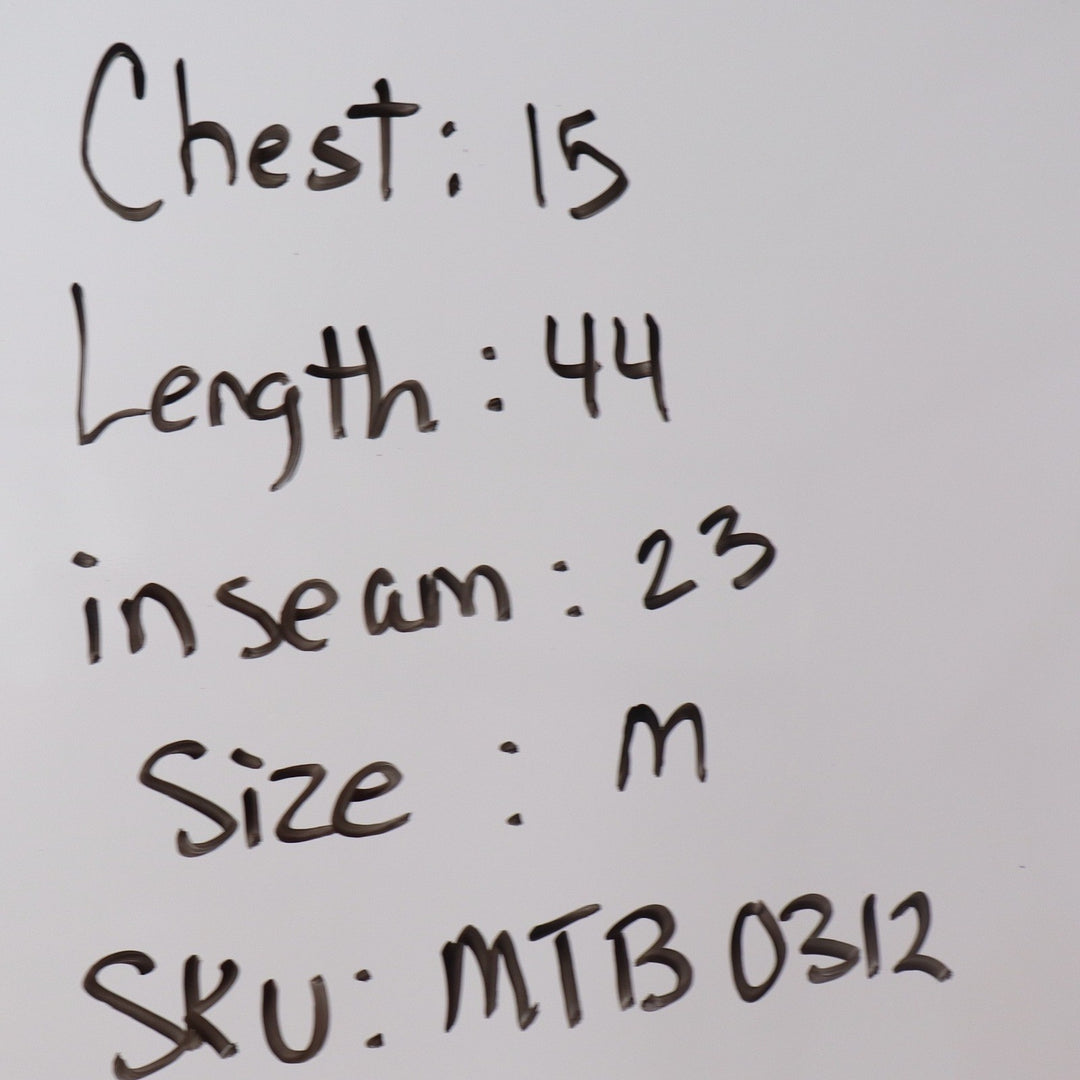 Chest: 15
Length: 44
inseam: 23
Size : M
SKU: MTB 0312